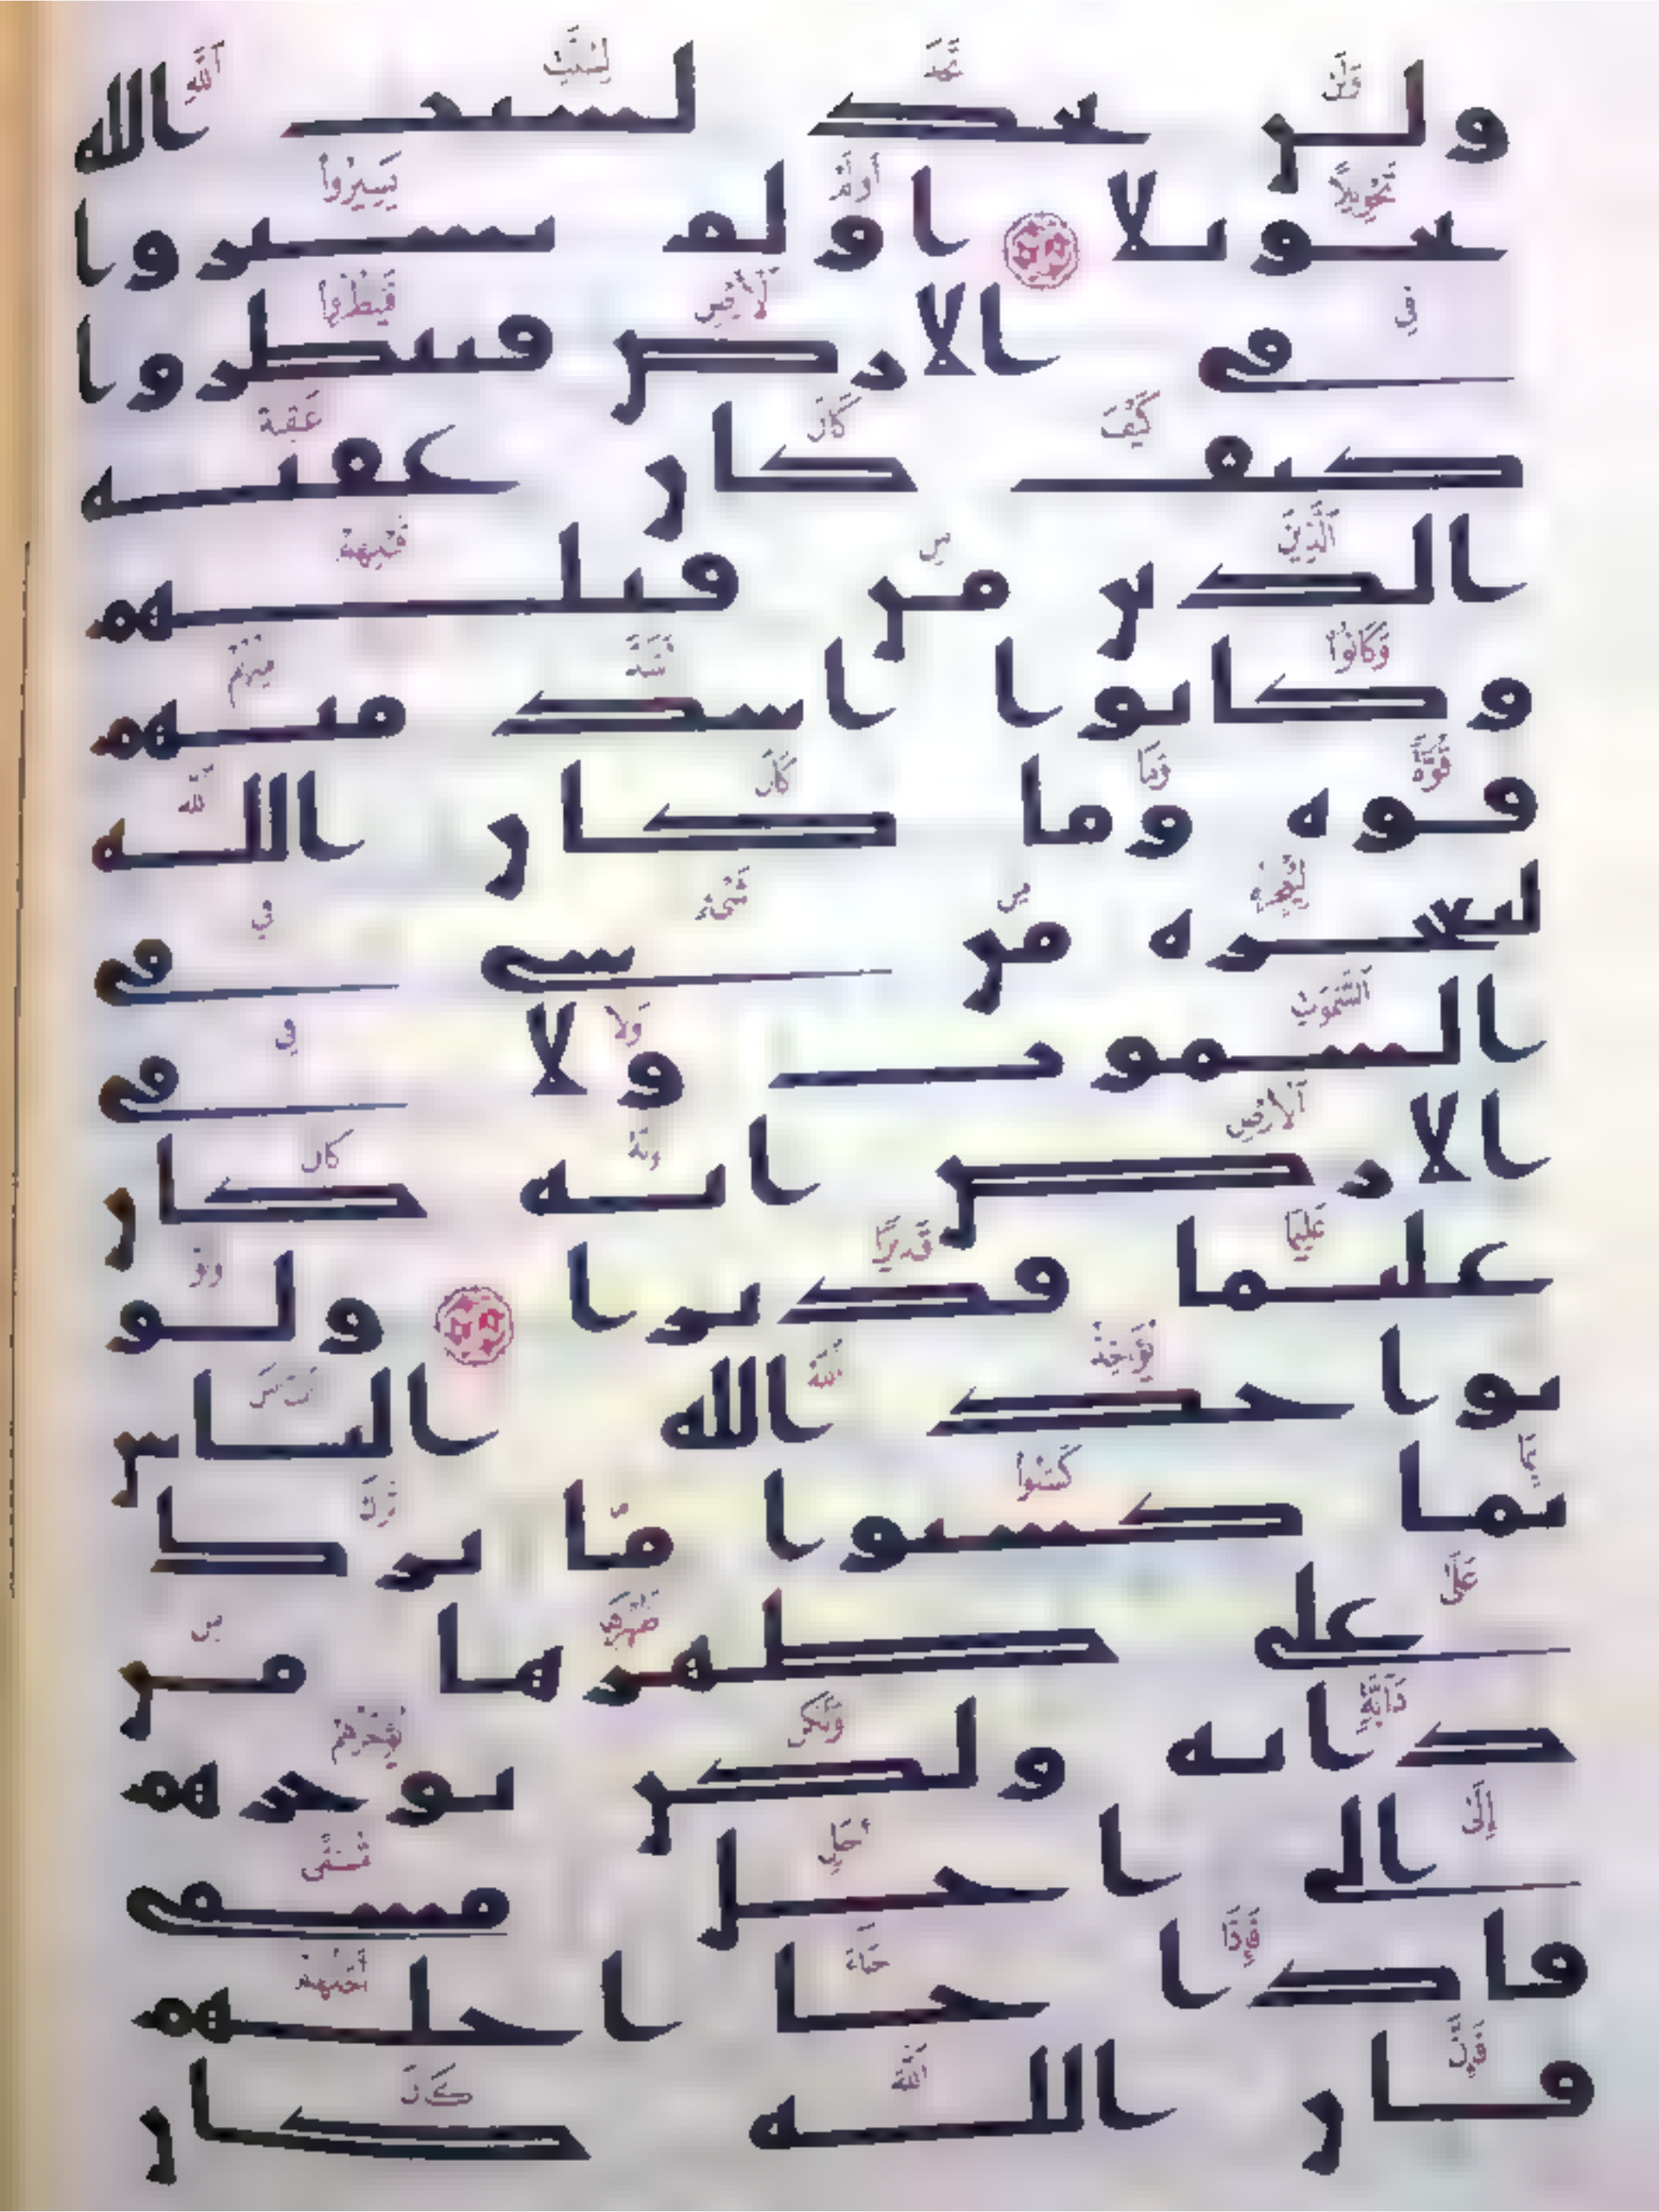 ولن تجد لسنت الله
تحويلا اولم يسيروا
في الارض فينظروا
كيف كان عقبه
الذين من قبلهم
وكانوا اشد منهم
قوه وما كان الله
ليعجزه من شي في
السموت ولا في
الارض انه كان
عليما قديرا ولو
يواخذ الله الناس
بما كسبوا ما ترك
على ظهرها من
دابه ولكن يوخرهم
الى اجل مسمى
فاذا جا اجلهم
فان الله كان